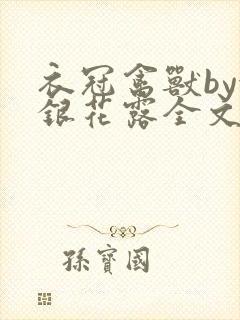 衣冠禽獸by
銀花露全文
孫寶國